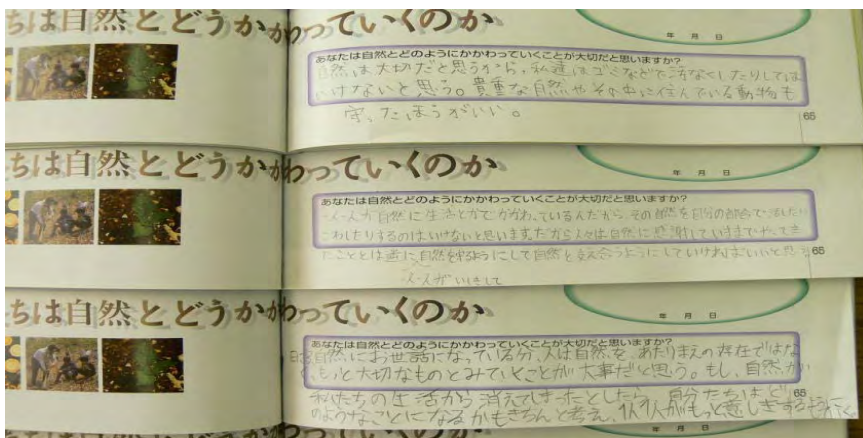 ちは自然とどうかかわっていくのか
年 月 日
あなたは自然とどのようにかかわっていくことが大切だと思いますか?
自然は大切だと思うから、私達はゴミなどで汚なくしたりしては
いけないと思う。貴重な自然やその中に住んでいる動物も
守ったほうがいい。
65
ちは自然とどうかかわっていくのか
年 月 日
あなたは自然とどのようにかかわっていくことが大切だと思いますか?
一人一人が自然に生活とかでかかわっているんだから、その自然を自分の都合で
こわしたりするのはいけないと思います。だから人々は自然に感謝していままでやってき
たこととは逆に、自然を守るようにして自然と支え合うようにしていければいいと思う
65
一人一人がいしきして
ちは自然とどうかかわっていくのか
年 月 日
あなたは自然とどのようにかかわっていくことが大切だと思いますか?
自然にお世話になっている分、人は自然を、あたりまえの存在ではな
く、もっと大切なものとみていくことが大事だと思う。もし、自然が
私たちの生活から消えてしまったとしたら、自分たちはど
65
のようなことになるかもきちんと考え、1人1人がもっと意しきする
年 月 日